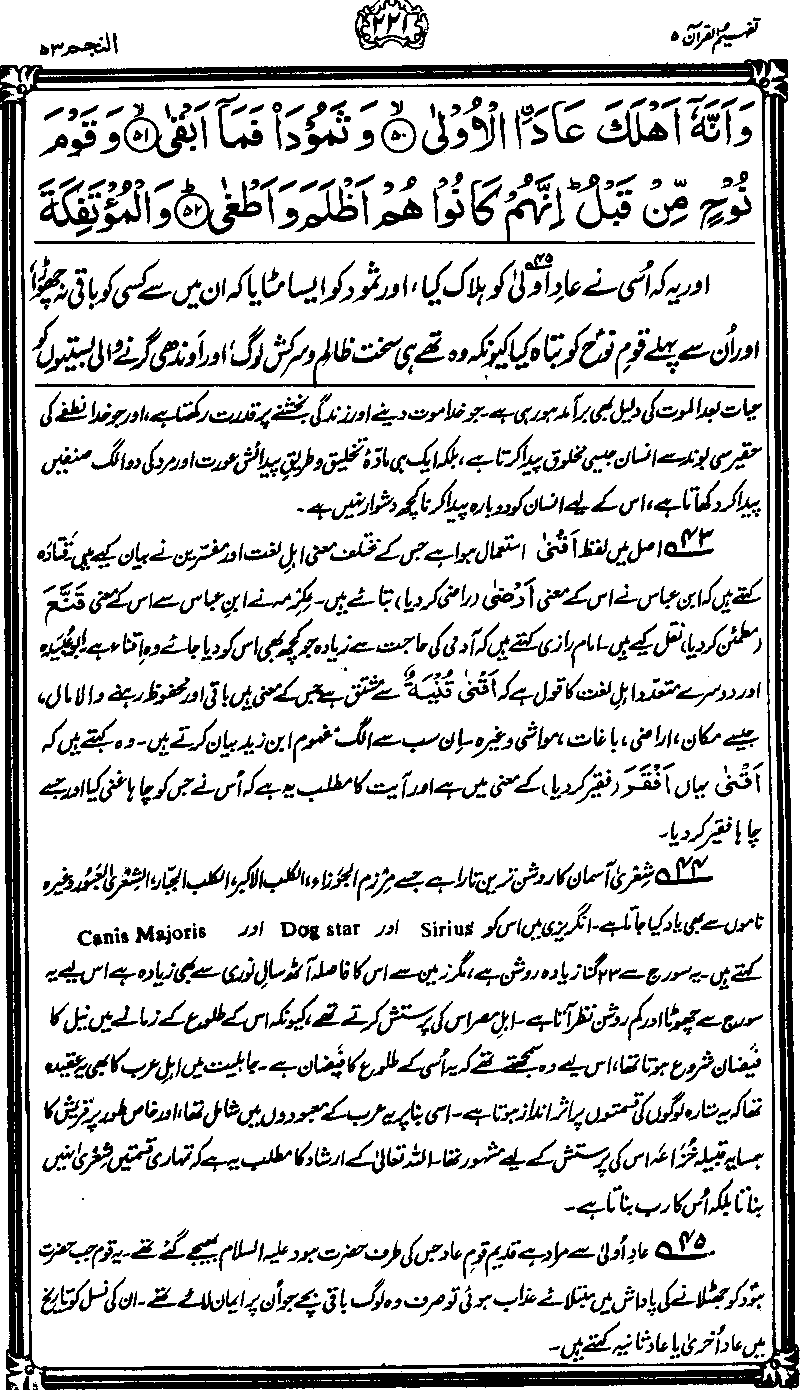 تفہیم القرآن ۵
۲۲۱
النجم ۵۳
وَاَنَّهٗٓ اَهْلَكَ عَادَاۨ الْاُوْلٰى ۙ۵۰ وَ ثَمُوْدَا۟ فَمَآ اَبْقٰى ۙ۵۱ وَ قَوْمَ
نُوْحٍ مِّنْ قَبْلُ ؕ اِنَّهُمْ كَانُوْا هُمْ اَظْلَمَ وَ اَطْغٰى ؕ۵۲ وَالْمُؤْتَفِكَةَ
اور یہ کہ اُسی نے عادِ اُولیٰ۴۵ کو ہلاک کیا، اور ثمود کو ایسا مٹایا کہ ان میں سے کسی کو باقی نہ چھوڑا
اور اُن سے پہلے قومِ نوحؑ کو تباہ کیا کیونکہ وہ تھے ہی سخت ظالم و سرکش لوگ، اور اَوندھی گرنے والی بستیوں کو
حیات بعد الموت کی دلیل بھی برآمد ہو رہی ہے۔ جو خدا موت دینے اور زندگی بخشنے پر قدرت رکھتا ہے، اور جو خدا نطفے کی
حقیر سی بوند سے انسان جیسی مخلوق پیدا کرتا ہے، بلکہ ایک ہی مادۂ تخلیق و طریقِ پیدائش عورت اور مرد کی دو الگ صنفیں
پیدا کر دکھاتا ہے، اس کے لیے انسان کو دوبارہ پیدا کرنا کچھ دشوار نہیں ہے۔
۴۳ اصل میں لفظ اَقْنٰی استعمال ہوا ہے جس کے مختلف معنی اہلِ لغت اور مفسّرین نے بیان کیے ہیں۔ قَتادہ
کہتے ہیں کہ ابن عباس نے اس کے معنی اَرْضٰی (راضی کر دیا) بتائے ہیں۔ عِکرِمہ نے ابنِ عباس سے اس کے معنی قَنَّعَ
(مطمئن کر دیا) نقل کیے ہیں۔ امام رازی کہتے ہیں کہ آدمی کی حاجت سے زیادہ جو کچھ بھی اس کو دیا جائے وہ اِقناء ہے۔ ابو عُبَیدہ
اور دوسرے متعدد اہلِ لغت کا قول ہے کہ اَقْنٰی قُنْیَۃٌ سے مشتق ہے جس کے معنی ہیں باقی اور محفوظ رہنے والا مال،
جیسے مکان، اراضی، باغات، مواشی وغیرہ۔ اِن سب سے الگ مفہوم ابن زید بیان کرتے ہیں۔ وہ کہتے ہیں کہ
اَقْنٰی یہاں اَفْقَرَ (فقیر کر دیا) کے معنی میں ہے اور آیت کا مطلب یہ ہے کہ اُس نے جس کو چاہا غنی کیا اور جسے
چاہا فقیر کر دیا۔
۴۴ شِعْریٰ آسمان کا روشن ترین تارا ہے جسے مِرْزم الجَوْزاء، الکلب الاکبر، الکلب الجبّار، الشِّعْریٰ العَبُور وغیرہ
ناموں سے بھی یاد کیا جاتا ہے۔ انگریزی میں اس کو Sirius اور Dog star اور Canis Majoris
کہتے ہیں۔ یہ سورج سے ۲۳ گنا زیادہ روشن ہے، مگر زمین سے اس کا فاصلہ آٹھ سالِ نوری سے بھی زیادہ ہے اس لیے یہ
سورج سے چھوٹا اور کم روشن نظر آتا ہے۔ اہلِ مصر اس کی پرستش کرتے تھے، کیونکہ اس کے طلوع کے زمانے میں نیل کا
فیضان شروع ہوتا تھا، اس لیے وہ سمجھتے تھے کہ یہ اُسی کے طلوع کا فیضان ہے۔ جاہلیت میں اہلِ عرب کا بھی یہ عقیدہ
تھا کہ یہ ستارہ لوگوں کی قسمتوں پر اثر انداز ہوتا ہے۔ اسی بنا پر یہ عرب کے معبودوں میں شامل تھا، اور خاص طور پر قریش کا
ہمسایہ قبیلہ خُزَاعَہ اس کی پرستش کے لیے مشہور تھا۔ اللہ تعالیٰ کے ارشاد کا مطلب یہ ہے کہ تمہاری قسمتیں شِعْریٰ نہیں
بناتا بلکہ اُس کا رب بناتا ہے۔
۴۵ عادِ اُولیٰ سے مراد ہے قدیم قومِ عاد جس کی طرف حضرت ہود علیہ السلام بھیجے گئے تھے۔ یہ قوم جب حضرت
ہودؑ کو جھٹلانے کی پاداش میں مبتلائے عذاب ہوئی تو صرف وہ لوگ باقی بچے جو اُن پر ایمان لائے تھے۔ ان کی نسل کو تاریخ
میں عادِ اُخریٰ یا عادِ ثانیہ کہتے ہیں۔